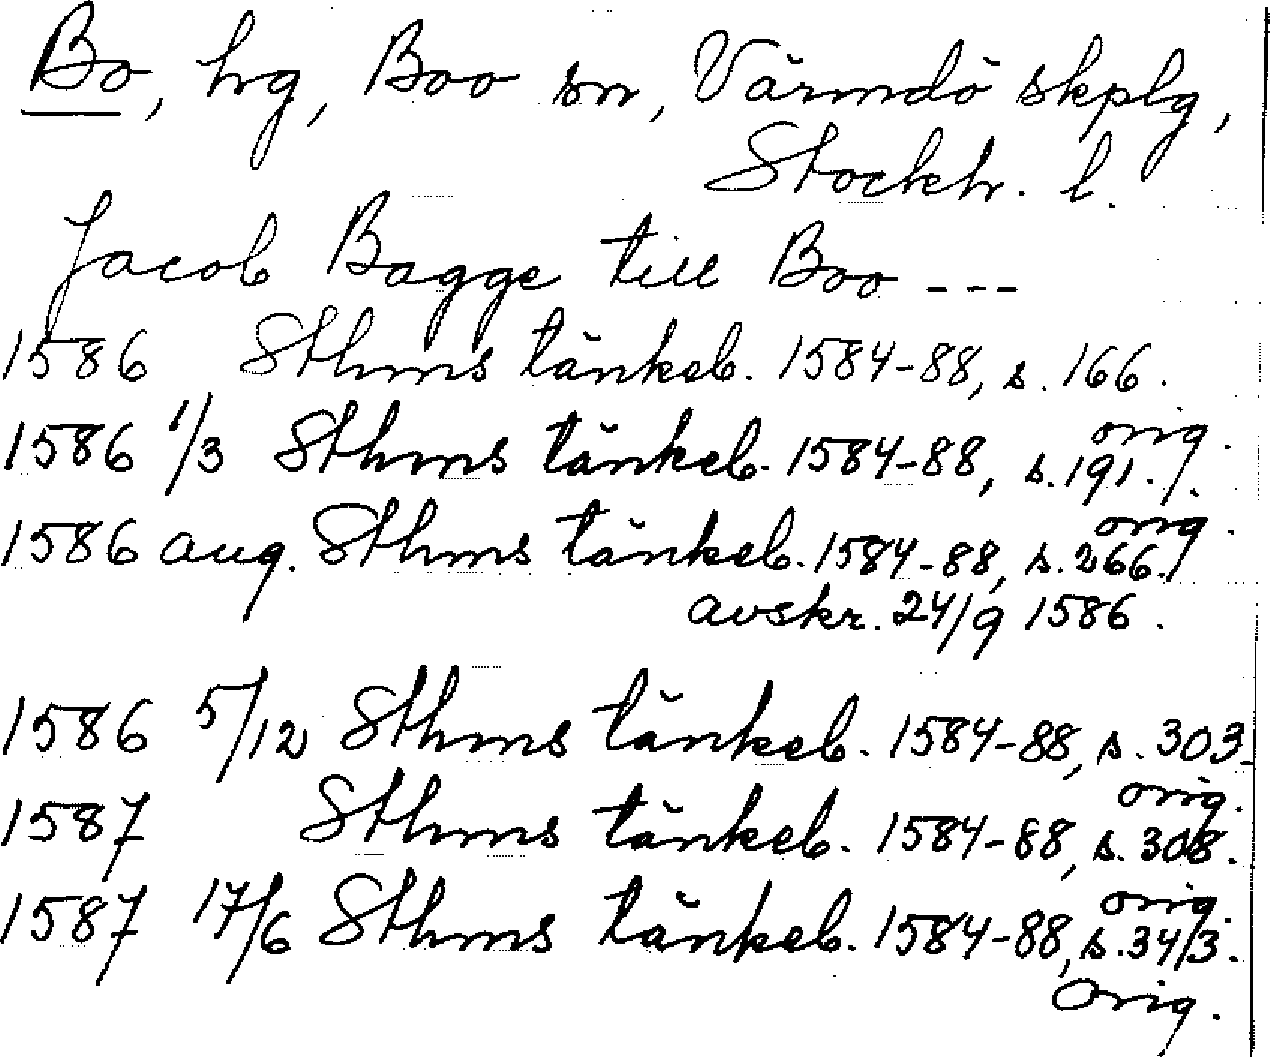 Bo, hg, Boo sn, Värmdö skplg,
Stockh. l.
Jacob Bagge till Boo ---
1586 Sthms tänkeb. 1584-88, s. 166.
orig.
1586 1/3 Sthms tänkeb. 1584-88, s. 191.
orig.
1586 aug. Sthms tänkeb. 1584-88, s. 266.
avskr. 24/9 1586.
1586 5/12 Sthms tänkeb. 1584-88, s. 303.
orig.
1587 Sthms tänkeb. 1584-88, s. 308.
orig.
1587 17/6 Sthms tänkeb. 1584-88, s. 343.
Orig.